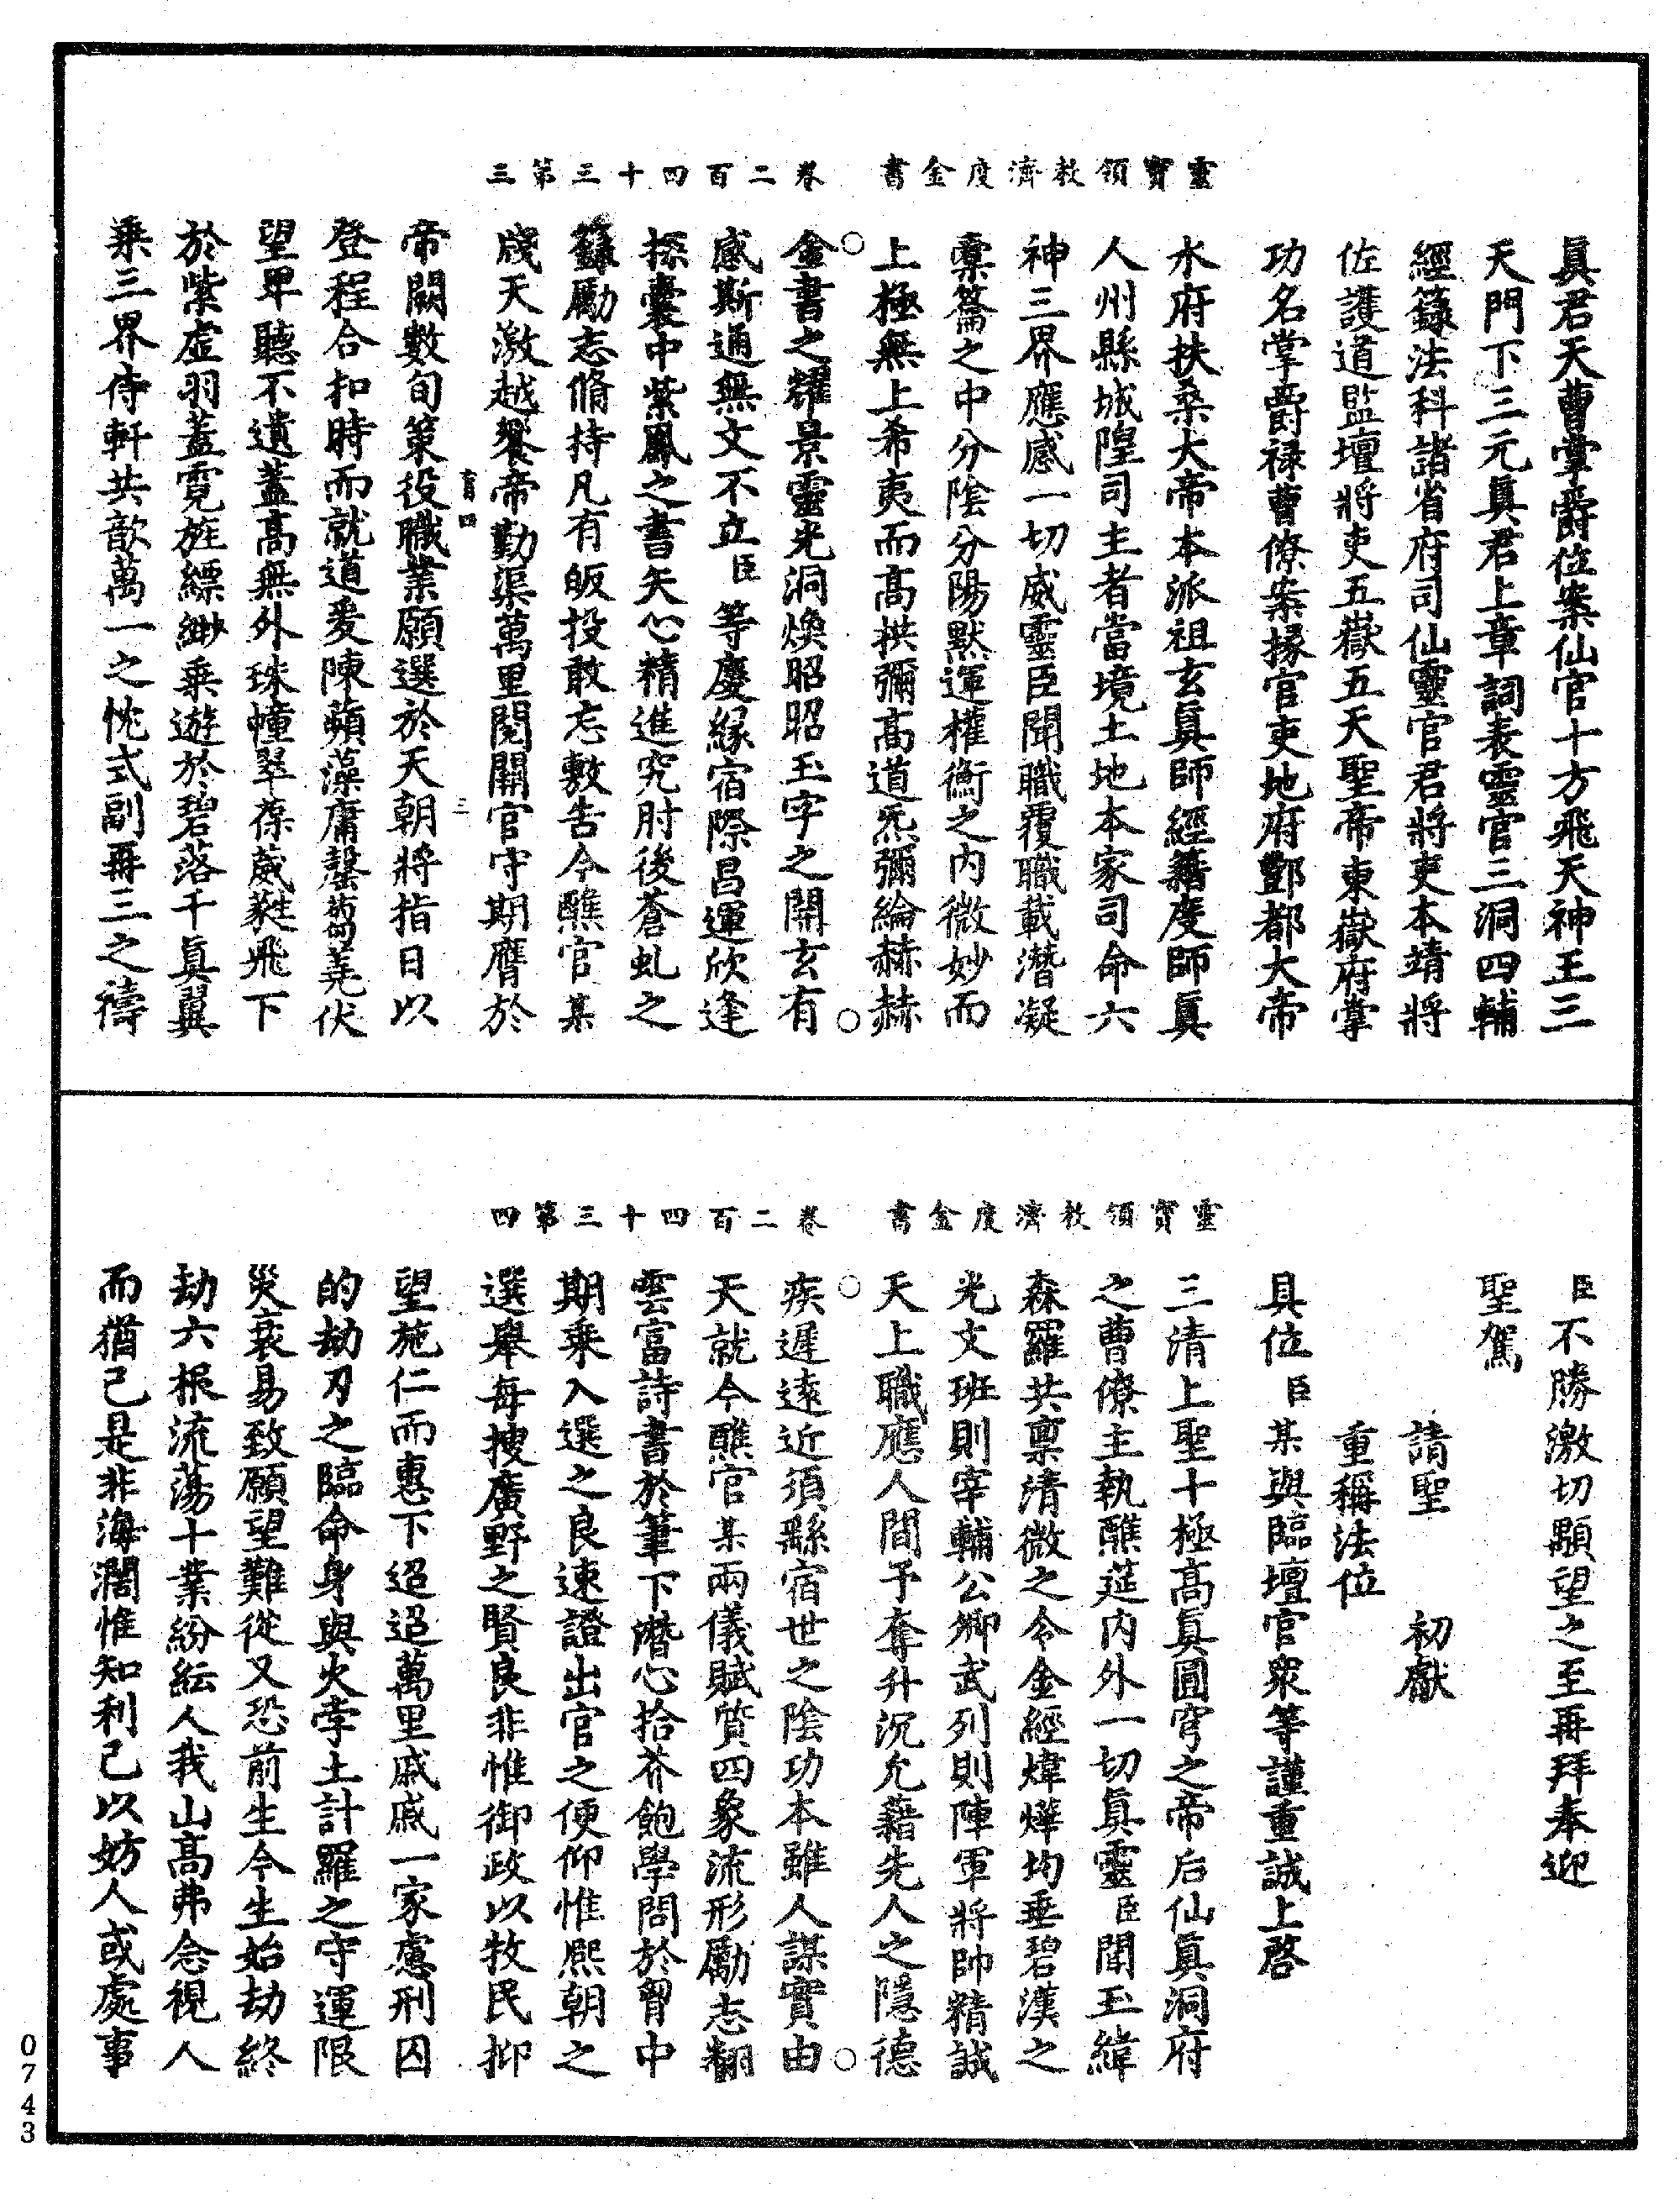 靈寶領教濟度金書　卷二百四十三第三
眞君天曹掌爵位案仙官十方飛天神王三
天門下三元眞君上章詞表靈官三洞四輔
經籙法科諸省府司仙靈官君將吏本靖將
佐護道監壇將吏五嶽五天聖帝東嶽府掌
功名掌爵祿曹僚案掾官吏地府酆都大帝
水府扶桑大帝本派祖玄眞師經籍度師眞
人州縣城隍司主者當境土地本家司命六
神三界應感一切威靈臣聞職覆職載潛凝
橐籥之中分陰分陽默運權衡之內微妙而
上極無上希夷而高拱彌高道炁彌綸赫赫
金書之耀景靈光洞煥昭昭玉字之開玄有
感斯通無文不立臣等慶緣宿際昌運欣逢
探囊中紫鳳之書矢心精進究肘後蒼虬之
籙勵志脩持凡有皈投敢忘敷告今醮官某
成天激越饗帝勤渠萬里閱闢官守期膺於
帝闕數旬策役職業願選於天朝將指日以
登程合扣時而就道爰陳蘋藻庸罄蒭蕘伏
望卑聽不遺蓋高無外珠幢翠葆葳蕤飛下
於紫虛羽蓋霓旌縹緲乘遊於碧落千眞翼
乘三界侍軒共歆萬一之忱式副再三之禱
靈寶領教濟度金書　卷二百四十三第四
臣不勝激切顒望之至再拜奉迎
聖駕
請聖　初獻
重稱法位
具位臣某與臨壇官衆等謹重誠上啓
三清上聖十極高眞圓穹之帝后仙眞洞府
之曹僚主執醮筵內外一切眞靈臣聞玉緯
森羅共稟清微之令金經煒燁均垂碧漢之
光文班則宰輔公卿武列則陣軍將帥精誠
天上職應人間予奪升沉允藉先人之隱德
疾遲遠近須繇宿世之陰功本雖人謀實由
天就今醮官某兩儀賦質四象流形勵志翻
雲富詩書於筆下潛心拾芥飽學問於胷中
期乘入選之良速證出官之便仰惟熙朝之
選舉每搜廣野之賢良非惟御政以牧民抑
望施仁而惠下迢迢萬里戚戚一家慮刑囚
的劫刃之臨命身與火孛土計羅之守運限
災衰易致願望難從又恐前生今生始劫終
劫六根流蕩十業紛紜人我山高弗念視人
而猶己是非海濶惟知利己以妨人或處事
0743